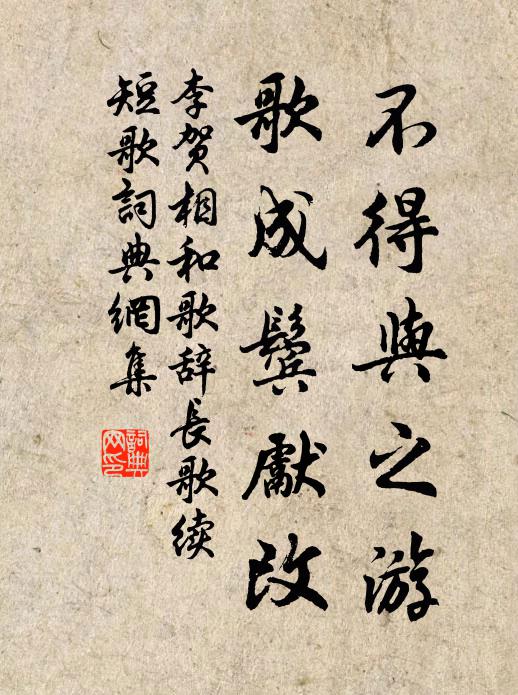 不得與之游
歌成鬓獻改
李贺相和歌辞长歌续
短歌詞典網集
詞典
网印